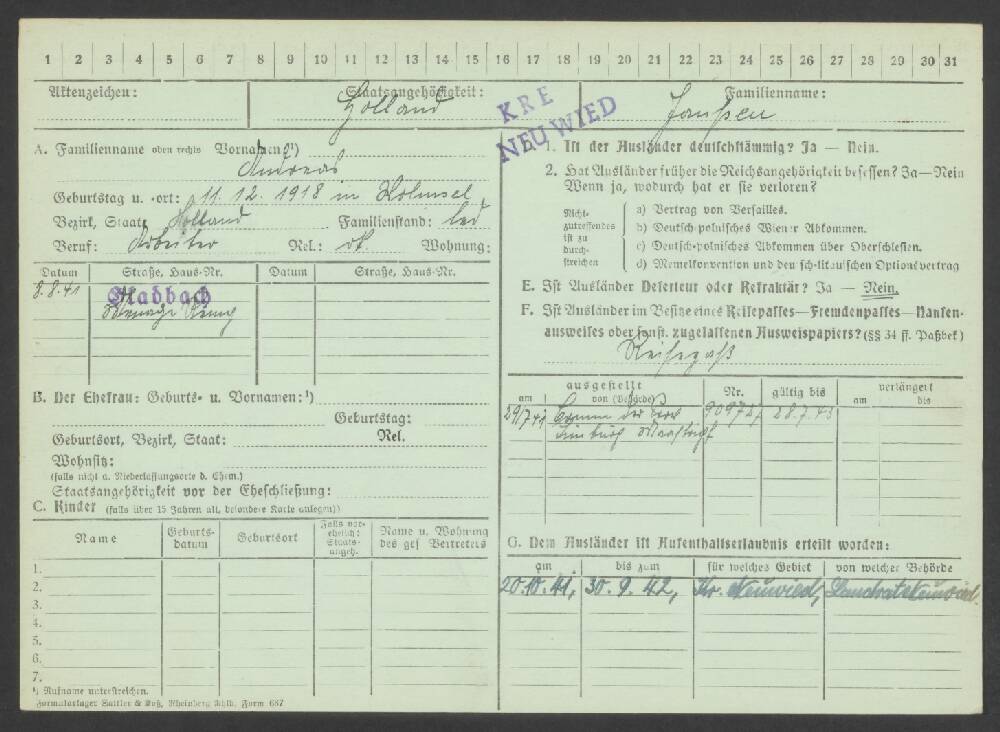 1 2 3 4 5 6 7 8 9 10 11 12 13 14 15 16 17 18 19 20 21 22 23 24 25 26 27 28 29 30 31
Aktenzeichen:
Staatsangehörigkeit:
Holland
KRE
NEUWIED
Familienname:
Janßen
A. Familienname oben rechts Vornamen¹)
Andreas
Geburtstag u. -ort: 11.12.1918 in
Bezirk, Staat: Holland Familienstand: led
Beruf: Arbeiter Rel.: Wohnung:
Datum Straße, Haus-Nr. Datum Straße, Haus-Nr.
8.8.41
B. Der Ehefrau: Geburts- u. Vornamen:¹)
Geburtstag:
Geburtsort, Bezirk, Staat: Rel.
Wohnsitz:
(falls nicht a. Niederlassungsorte d. Ehem.)
Staatsangehörigkeit vor der Eheschließung:
C. Kinder (falls über 15 Jahren alt, besondere Karte anlegen))
Name
Geburts-
datum
Geburtsort
Falls vor-
ehelich:
Staats-
angeh.
Name u. Wohnung
des ges Vertreters
1.
2.
3.
4.
5.
6.
7.
¹) Rufname unterstreichen.
Formularlager Sattler & Voß, Rheinberg Rhld. Form 687
1. Ist der Ausländer deutschstämmig? Ja — Nein.
2. Hat Ausländer früher die Reichsangehörigkeit besessen? Ja—Nein
Wenn ja, wodurch hat er sie verloren?
Nicht-
zutreffendes
ist zu
durch-
streichen
a) Vertrag von Versailles.
b) Deutsch-polnisches Wiener Abkommen.
c) Deutsch-polnisches Abkommen über Oberschlesien.
d) Memelkonvention und deutsch-litauischen Optionsvertrag
E. Ist Ausländer Deserteur oder Refraktär? Ja — Nein.
F. Ist Ausländer im Besitze eines Reisepasses—Fremdenpasses—Nansen-
ausweises oder sonst. zugelassenen Ausweispapiers? (§§ 34 ff. Paßbek)
Reisepaß
ausgestellt
am von (Behörde)
Nr.
gültig bis
verlängert
am bis
29/7 41 Comm der 28.7.43
Limburg Maastricht
G. Dem Ausländer ist Aufenthaltserlaubnis erteilt worden:
am bis zum für welches Gebiet von welcher Behörde
20.10.41, 30.9.42, Kr. Neuwied, Landrat Neuwied.